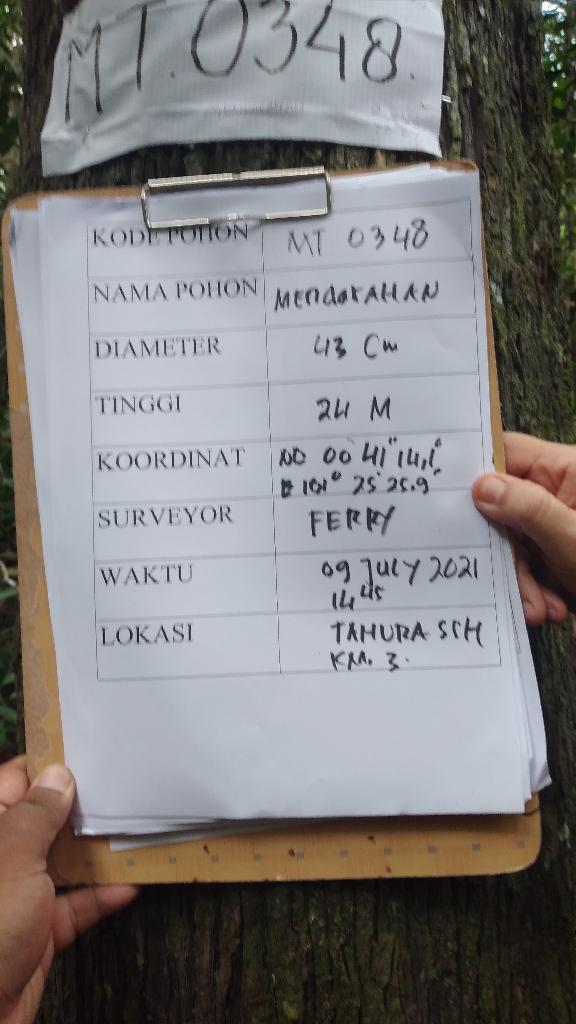 MT.0348.
KODE POHON MT 0348
NAMA POHON MENdARAHAN
DIAMETER 43 Cm
TINGGI 24 M
KOORDINAT N0 00 41" 14,1"
E 101° 25' 25.9"
SURVEYOR FERRY
WAKTU 09 JULY 2021
14 45
LOKASI TAHURA SSH
KM. 3.